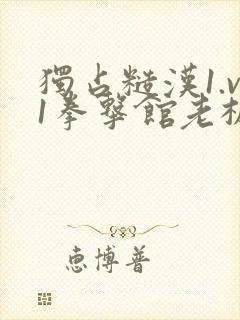 獨占糙漢1.v
1拳擊館老板
恵博普